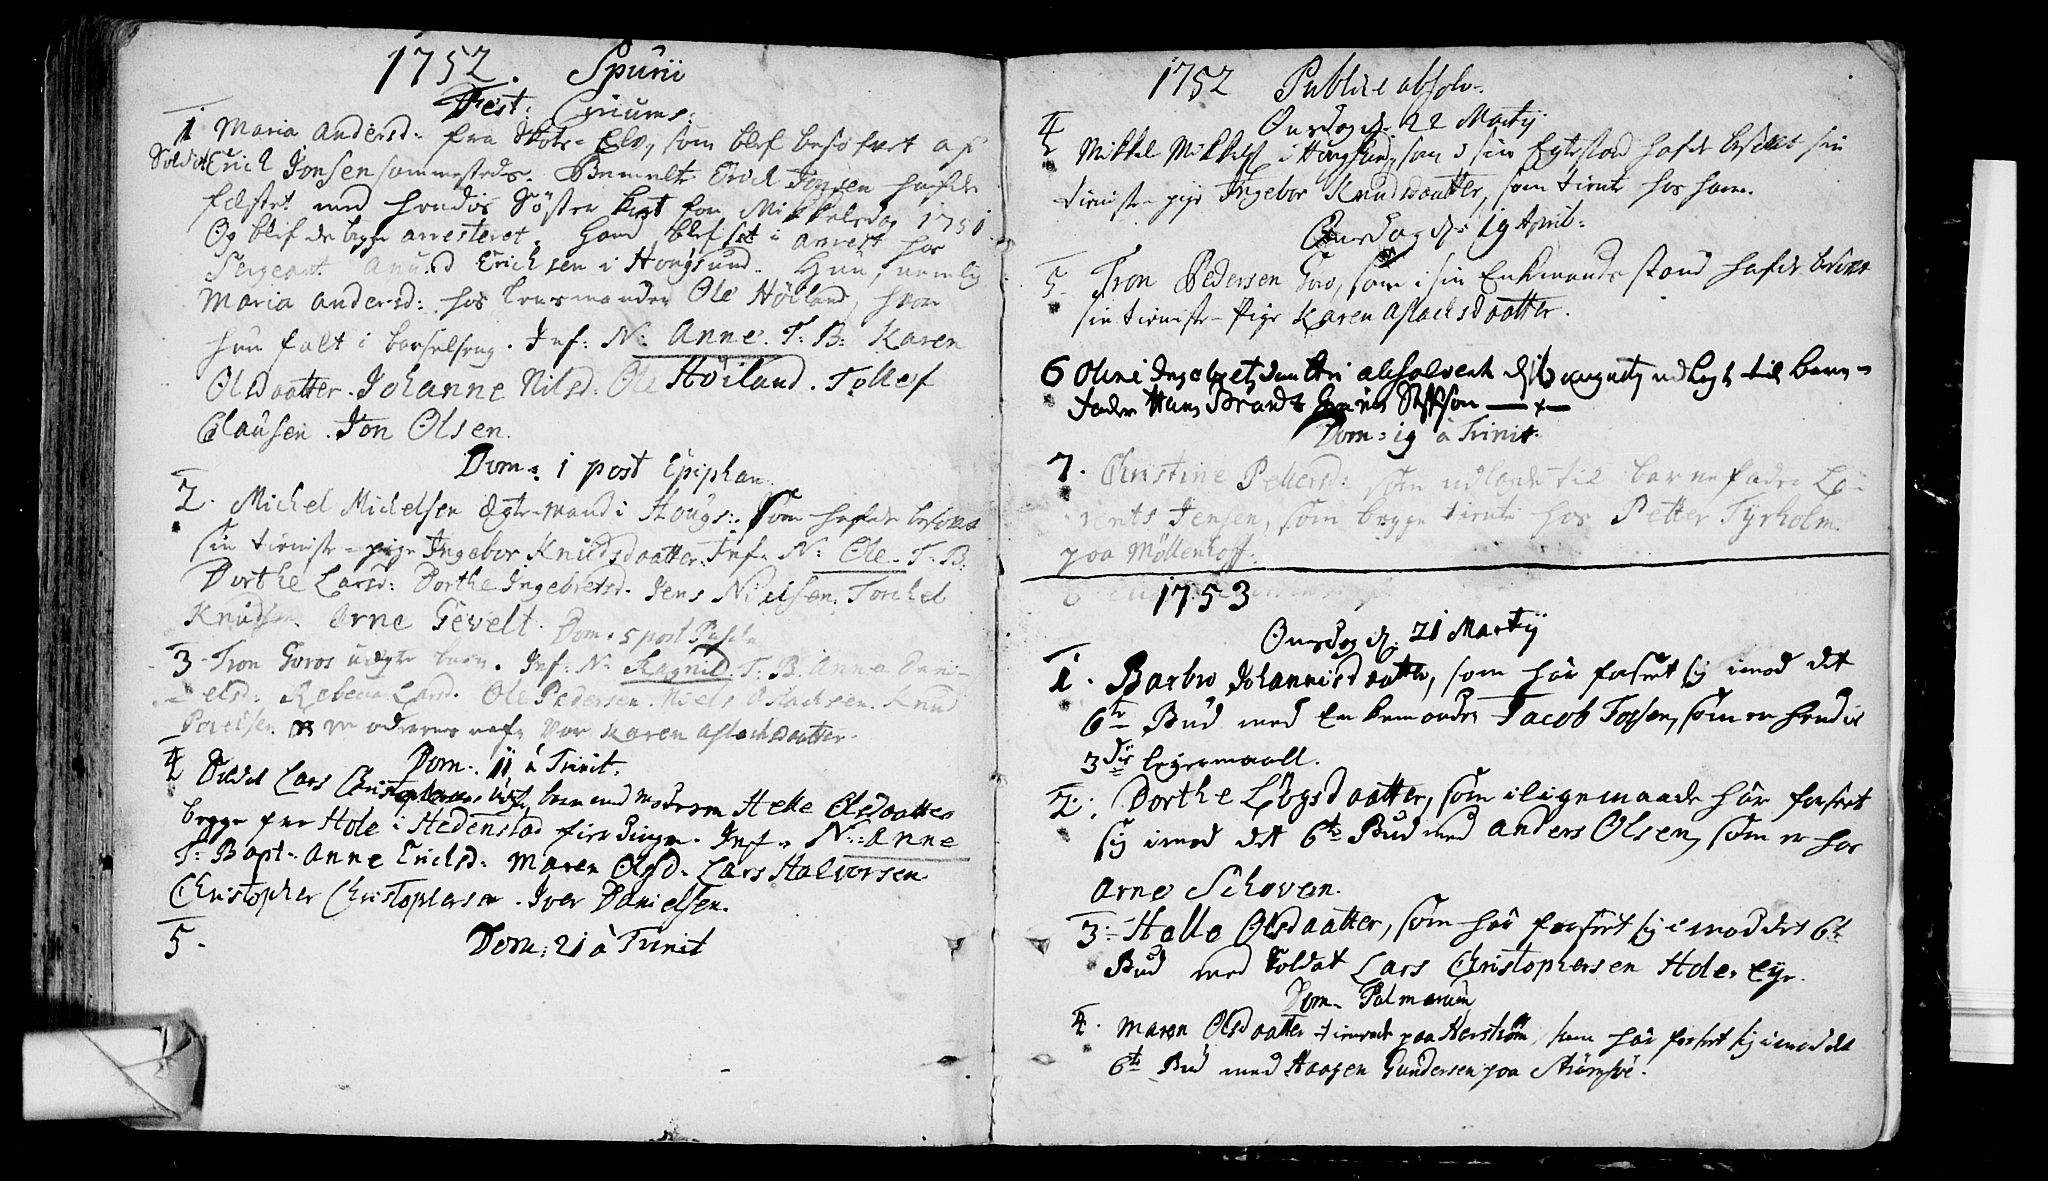 1752. Spurii
Fest: Circums:
1 Maria Andersd: fra Skots-Elv, som blef besofvet af
Soldat Erich Jonsen sammesteds. Bemelte Erich Jonsen hafde
fæstet med hendis Søster kort for Mikkelsdag 1751
Og blef de begge arresteret. Hand blef sat i arrest hos
Sergeant Anund Erichsen i Hougsund. Hun, nemlig
Maria Andersd: hos lensmanden Ole Høiland, hvor
hun falt i barselseng. Inf: N: Anne. T: B: Karen
Olsdaatter. Johanne Nilsd: Ole Høiland. Tollef
Clausen. Jon Olsen.
Dom: 1 post Epiphan.
2. Michel Michelsen Ægte-mand i Hougs: som hafde besovet
sin tieniste-pige Ingebor Knudsdaatter. Inf. N: Ole. T. B.
Dorthe Larsd: Dorthe Ingebretsd. Jens Nielsen. Torchel
Knudsen. Arne Gevelt. Dom. 5 post Pasch
3- Tron Goros uægte barn. Inf: N. Ragnil. T. B. Anne Dani-
-elsd: Rebecca Larsd. Ole Pedersen. Niels Aslachsen. Knud
Povelsen. moderens nafn var Karen Aslachsdaatter.
Dom. 11 à Trinit.
4 Soldat Lars Christophersens uægte barn med moderen Helle Olsdaatter
begge fra Hole i Hedenstad fierdinger. Inf. N: Anne
T: Bapt. Anne Erichsd: Maren Olsd. Lars Halvorsen
Christopher Christophersen. Iver Danielsen.
5. Dom: 21 à Trinit
1752 Publice absolv.
Onsdag d. 22 Martij
4 Mikkel Mikkels: i Hougsund, som i sin Egtestand hafde besovet sin
tieniste-pige Ingebor Knudsdaatter, som tiente hos ham.
Onsdag d. 19 April:
5- Tron Pedersen Goro, som i sin Enkemands stand hafde besovet
sin tieniste-Pige Karen Aslachsdaatter.
6 Oline Ingebretsdaatter absolvert d. 16 augusti udlagt til barne-
fader Hans Brandt
Dom: 19 à Trinit.
7. Christine Pettersd: som udlagde til barnefader Lo-
rents Jensen, som begge tiente hos Petter Tyrholm
paa Møllenhoff.
1753
Onsdag d. 21 Martij
1. Barbro Johannisdaatter, som har forseet sig imod det
6te Bud med Enkemanden Jacob Fossen, som er hendis
3die legermaall.
2. Dorthe Løgsdaatter, som i ligemaade har forseet
sig imod det 6te Bud med Anders Olsen, som er hos
Arne Schoven.
3- Helle Olsdaatter, som har forseet sig imod det 6te
Bud med Soldat Lars Christophersen Hole, Eje.
Dom. Palmarum
4. Maren Olsdaatter tienende paa Herstrøm, som har forseet sig imod det
6te Bud med Haagen Gundersen paa Strømsøe.